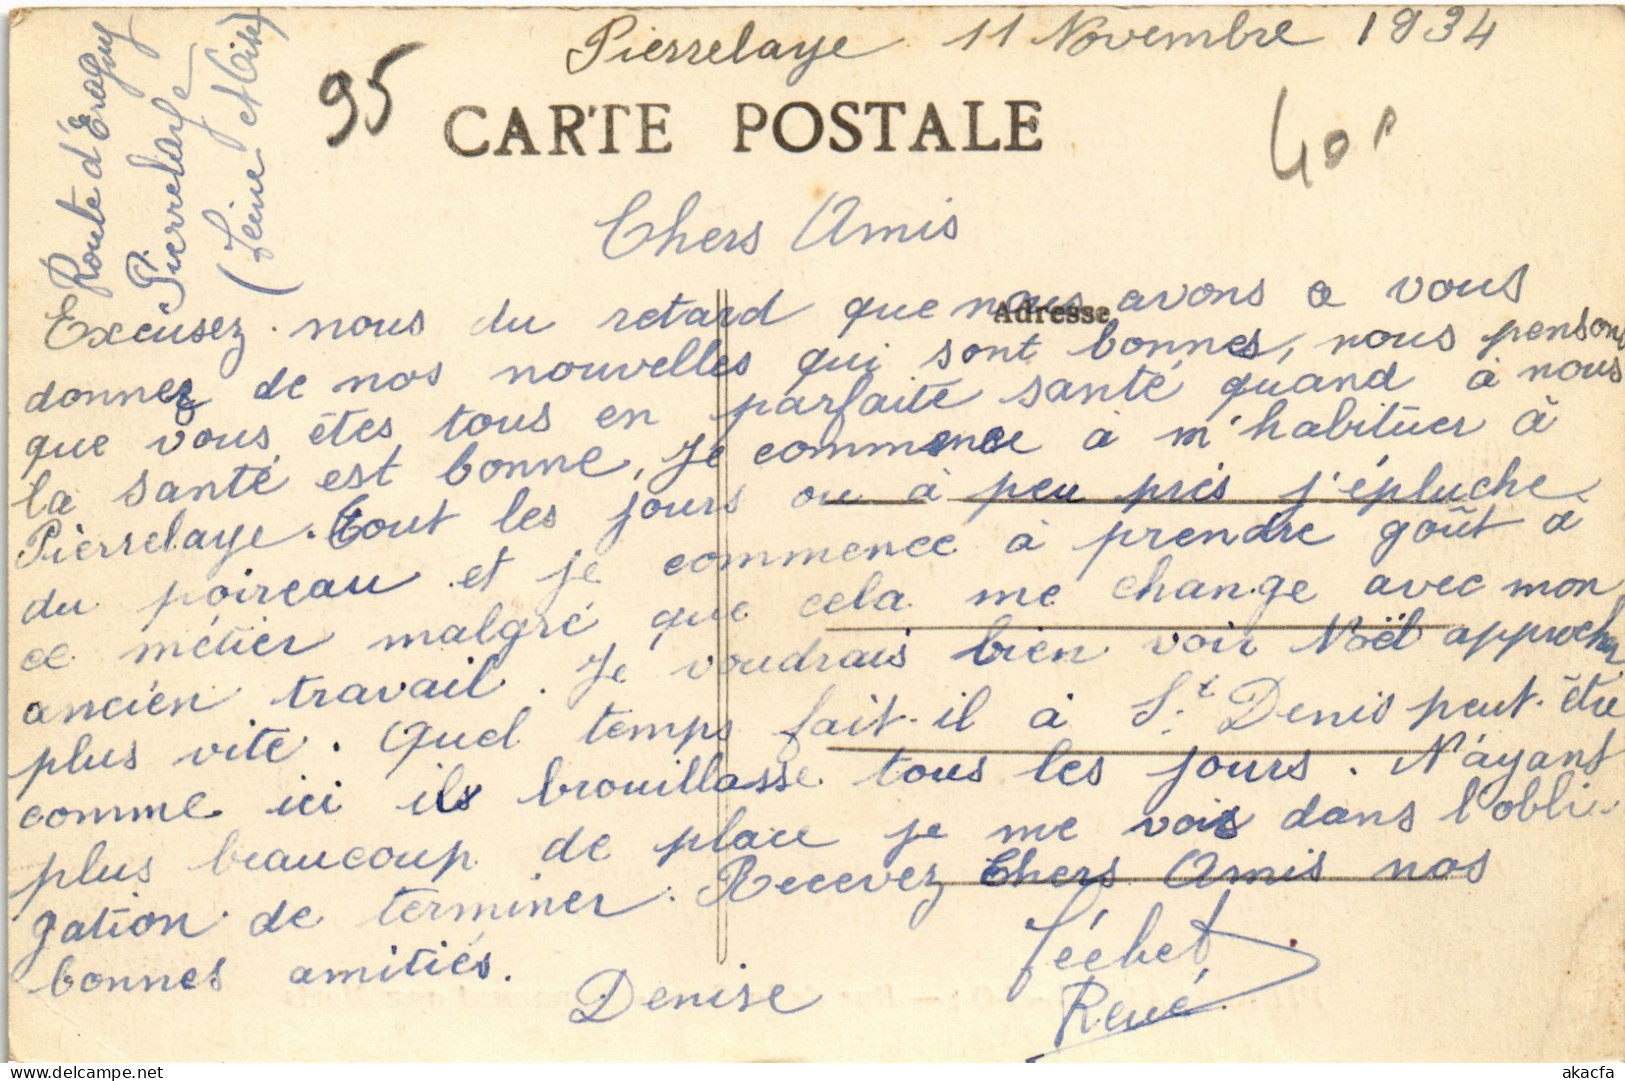 Pierrelaye 11 Novembre 1934
Route d'Eragny
Pierrelaye
(Seine et Oise)
95
CARTE POSTALE
40
Chers Amis
Adresse
Excusez-nous du retard que nous avons a vous
donner de nos nouvelles qui sont bonnes, nous pensons
que vous êtes tous en parfaite santé quand à nous
la santé est bonne, je commence à m'habituer à
Pierrelaye. tout les jours ou à peu près j'épluche
du poireau et je commence à prendre goût à
ce métier malgré que cela me change avec mon
ancien travail. Je voudrais bien voir Noël approcher
plus vite. Quel temps fait-il à St Denis peut-être
comme ici il brouillasse tous les jours. N'ayant
plus beaucoup de place je me vois dans l'obli-
gation de terminer. Recevez Chers Amis nos
bonnes amitiés.
Denise
René
akacfa